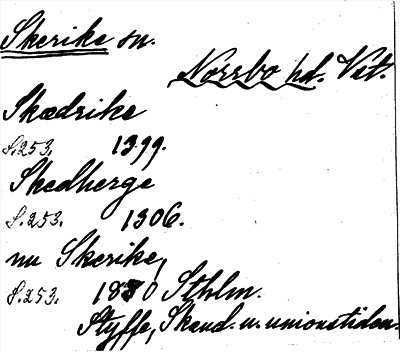 Skerike sn.
Norrbo hd. Vst.
Skædrike
S. 253. 1399.
Skedherge
S. 253. 1306.
nu Skerike,
S. 253. 1880 Sthlm.
Styffe, Skand. u. unionstiden.